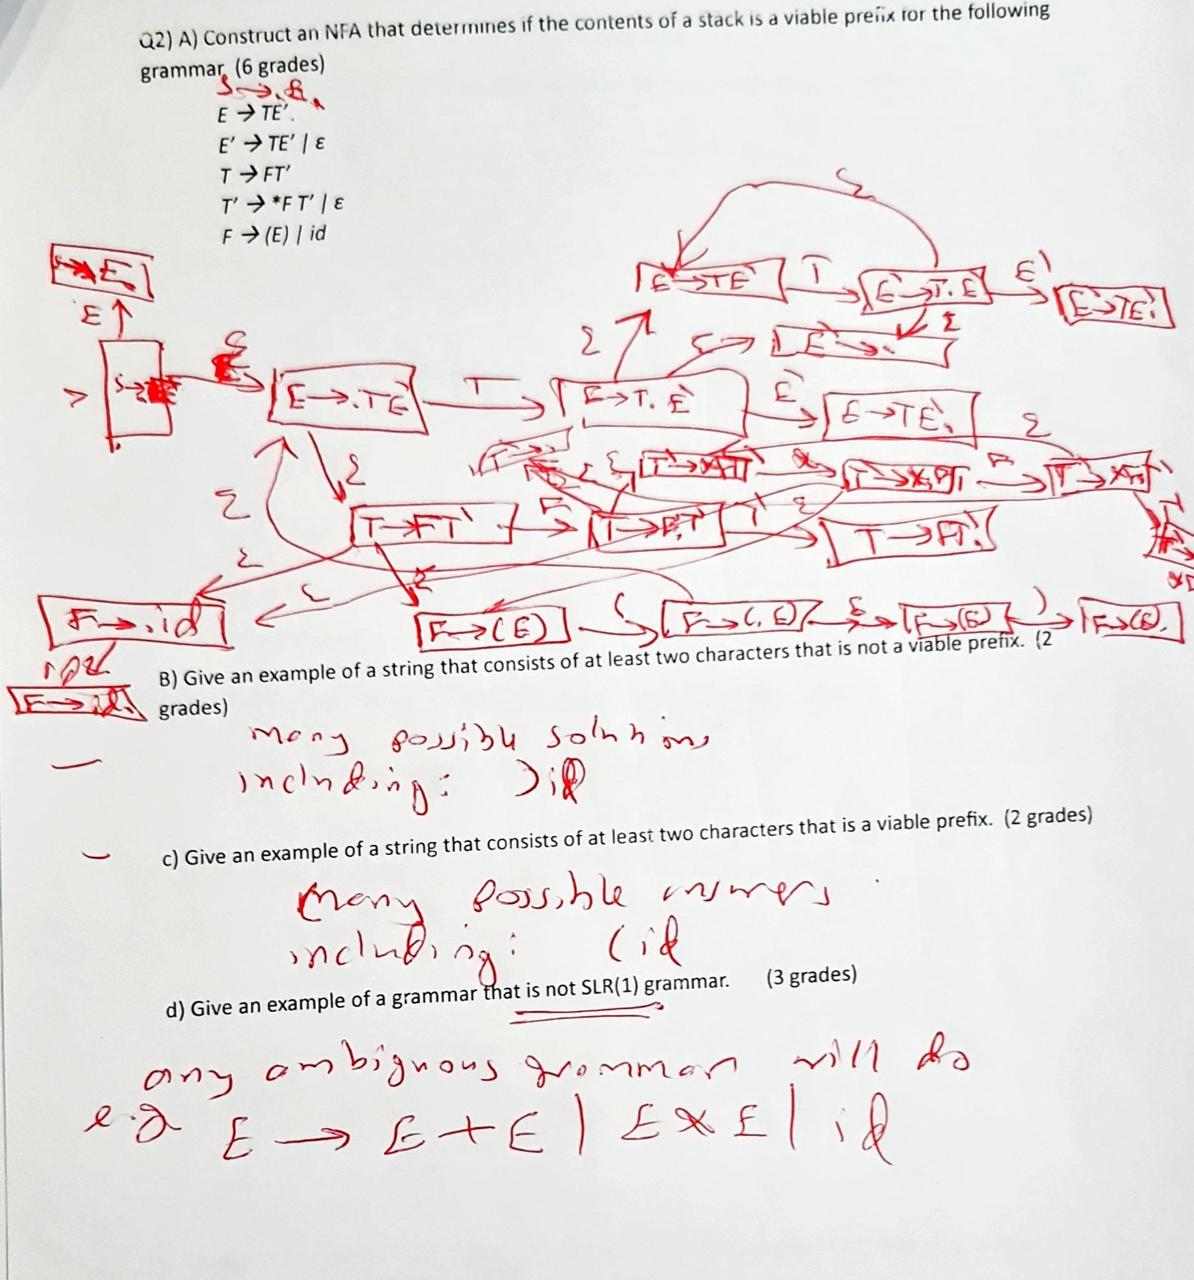 Q2) A) Construct an NFA that determines if the contents of a stack is a viable prefix for the following
grammar. (6 grades)
S → .E
E → TE'.
E' → TE' | ε
T → FT'
T' → *F T' | ε
F → (E) | id
E' → TE'
T
E' → T.E'
E'
E' → TE'.
ε
E' → .
E
ε
E → .TE'
T
E → T.E'
E'
E → TE'.
ε
T → FT'
F
T → F.T'
T'
T → FT'.
F → .id
F → (E)
(
F → (.E)
F → (E)
)
F → (E).
id
F → id.
B) Give an example of a string that consists of at least two characters that is not a viable prefix. (2
grades)
many possible solutions
including: )id
c) Give an example of a string that consists of at least two characters that is a viable prefix. (2 grades)
many possible answers
including: (id
d) Give an example of a grammar that is not SLR(1) grammar. (3 grades)
any ambiguous grammar will do
e.g E → E + E | E * E | id